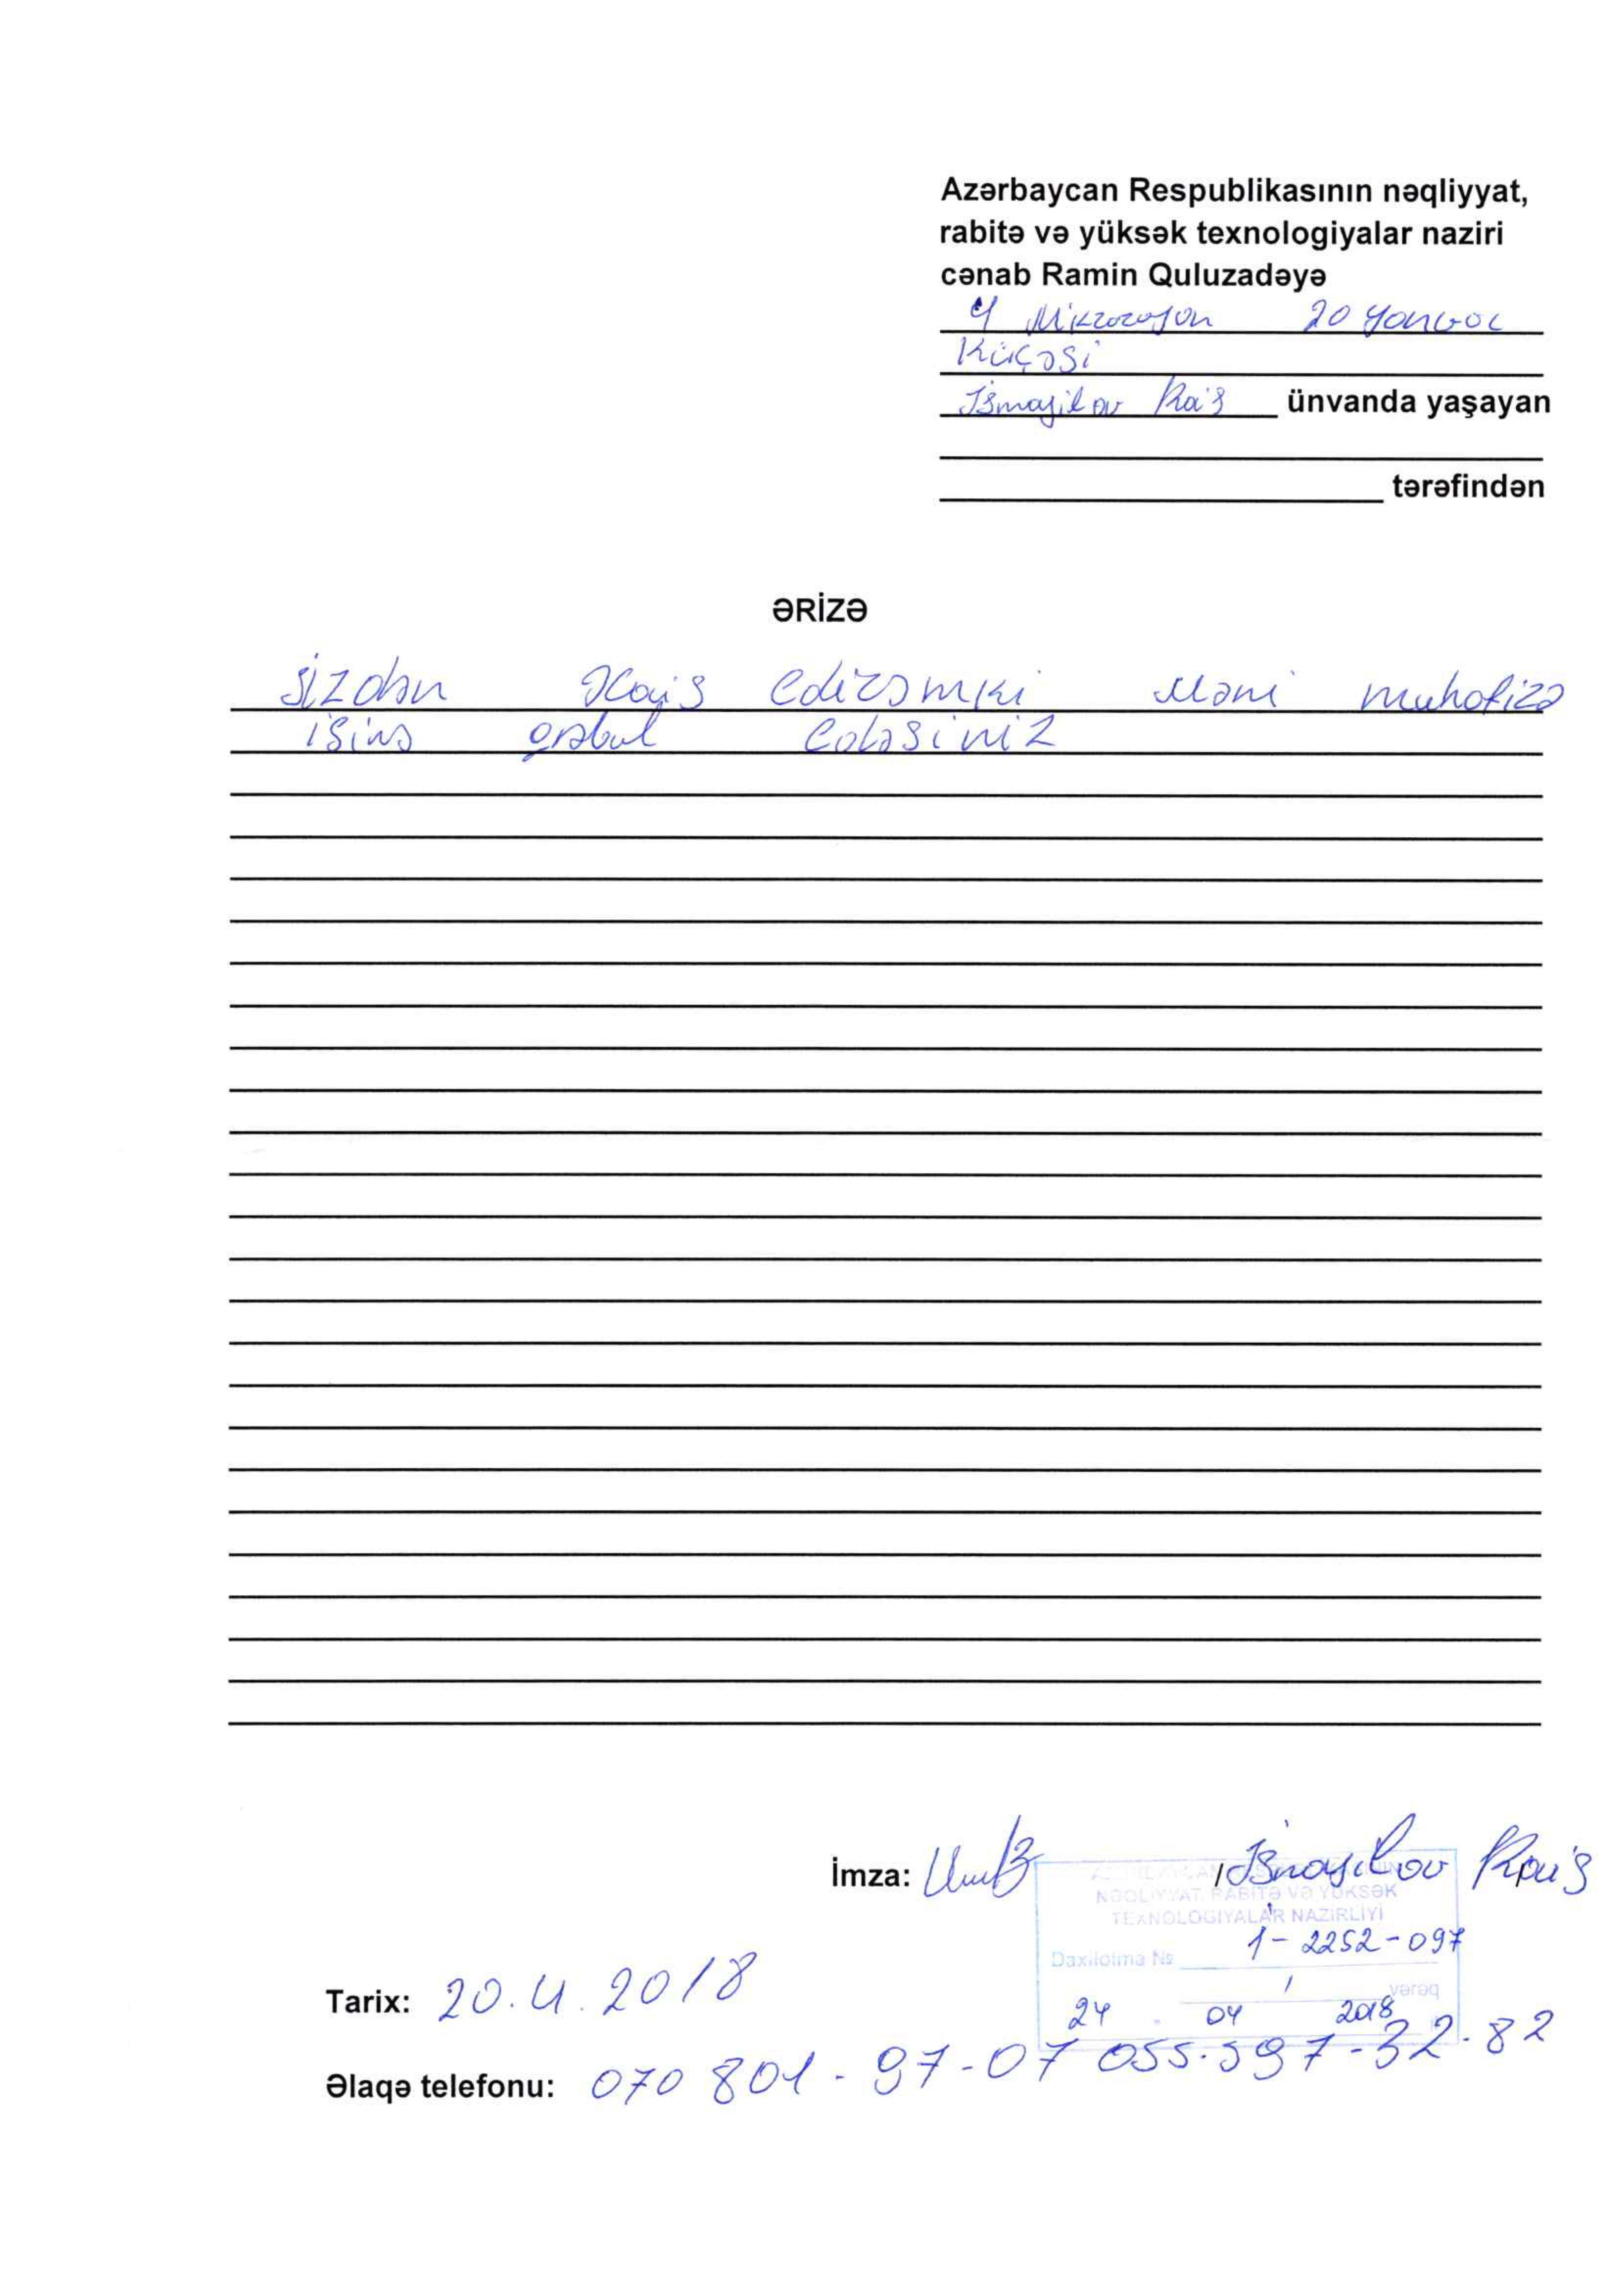 Azərbaycan Respublikasının nəqliyyat,
rabitə və yüksək texnologiyalar naziri
cənab Ramin Quluzadəyə
Mikrorayon 20 Yanvar
Küçəsi
İsmayilov Rais ünvanda yaşayan
tərəfindən
ƏRİZƏ
Sizdən Xaiş edirəmki Məni muhafizə
işinə qəbul edəsiniz
İmza: /İsmayilov Rais
AZƏRBAYCAN RESPUBLİKASININ
NƏQLİYYAT, RABİTƏ VƏ YÜKSƏK
TEXNOLOGİYALAR NAZİRLİYİ
Daxilolma № 1-2252-097
1 vərəq
24 . 04 2018
Tarix: 20.4.2018
Əlaqə telefonu: 070 801-97-07 055.597-32-82